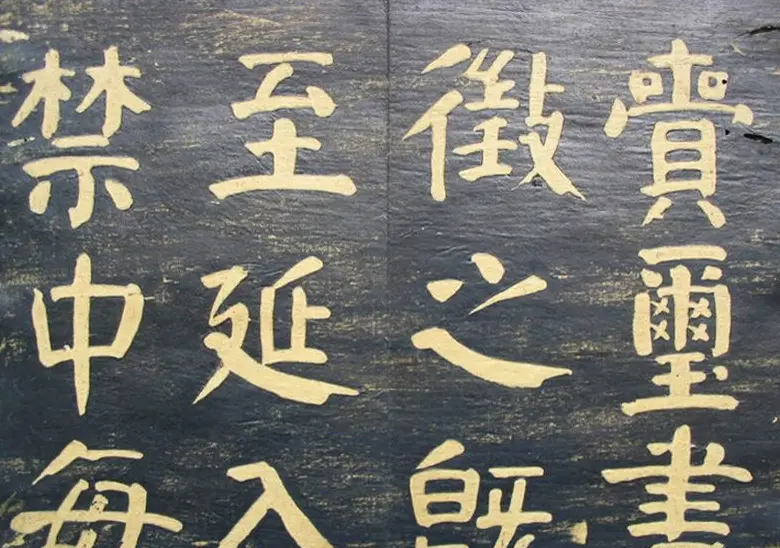 賷璽書
徵之既
至延入
禁中每